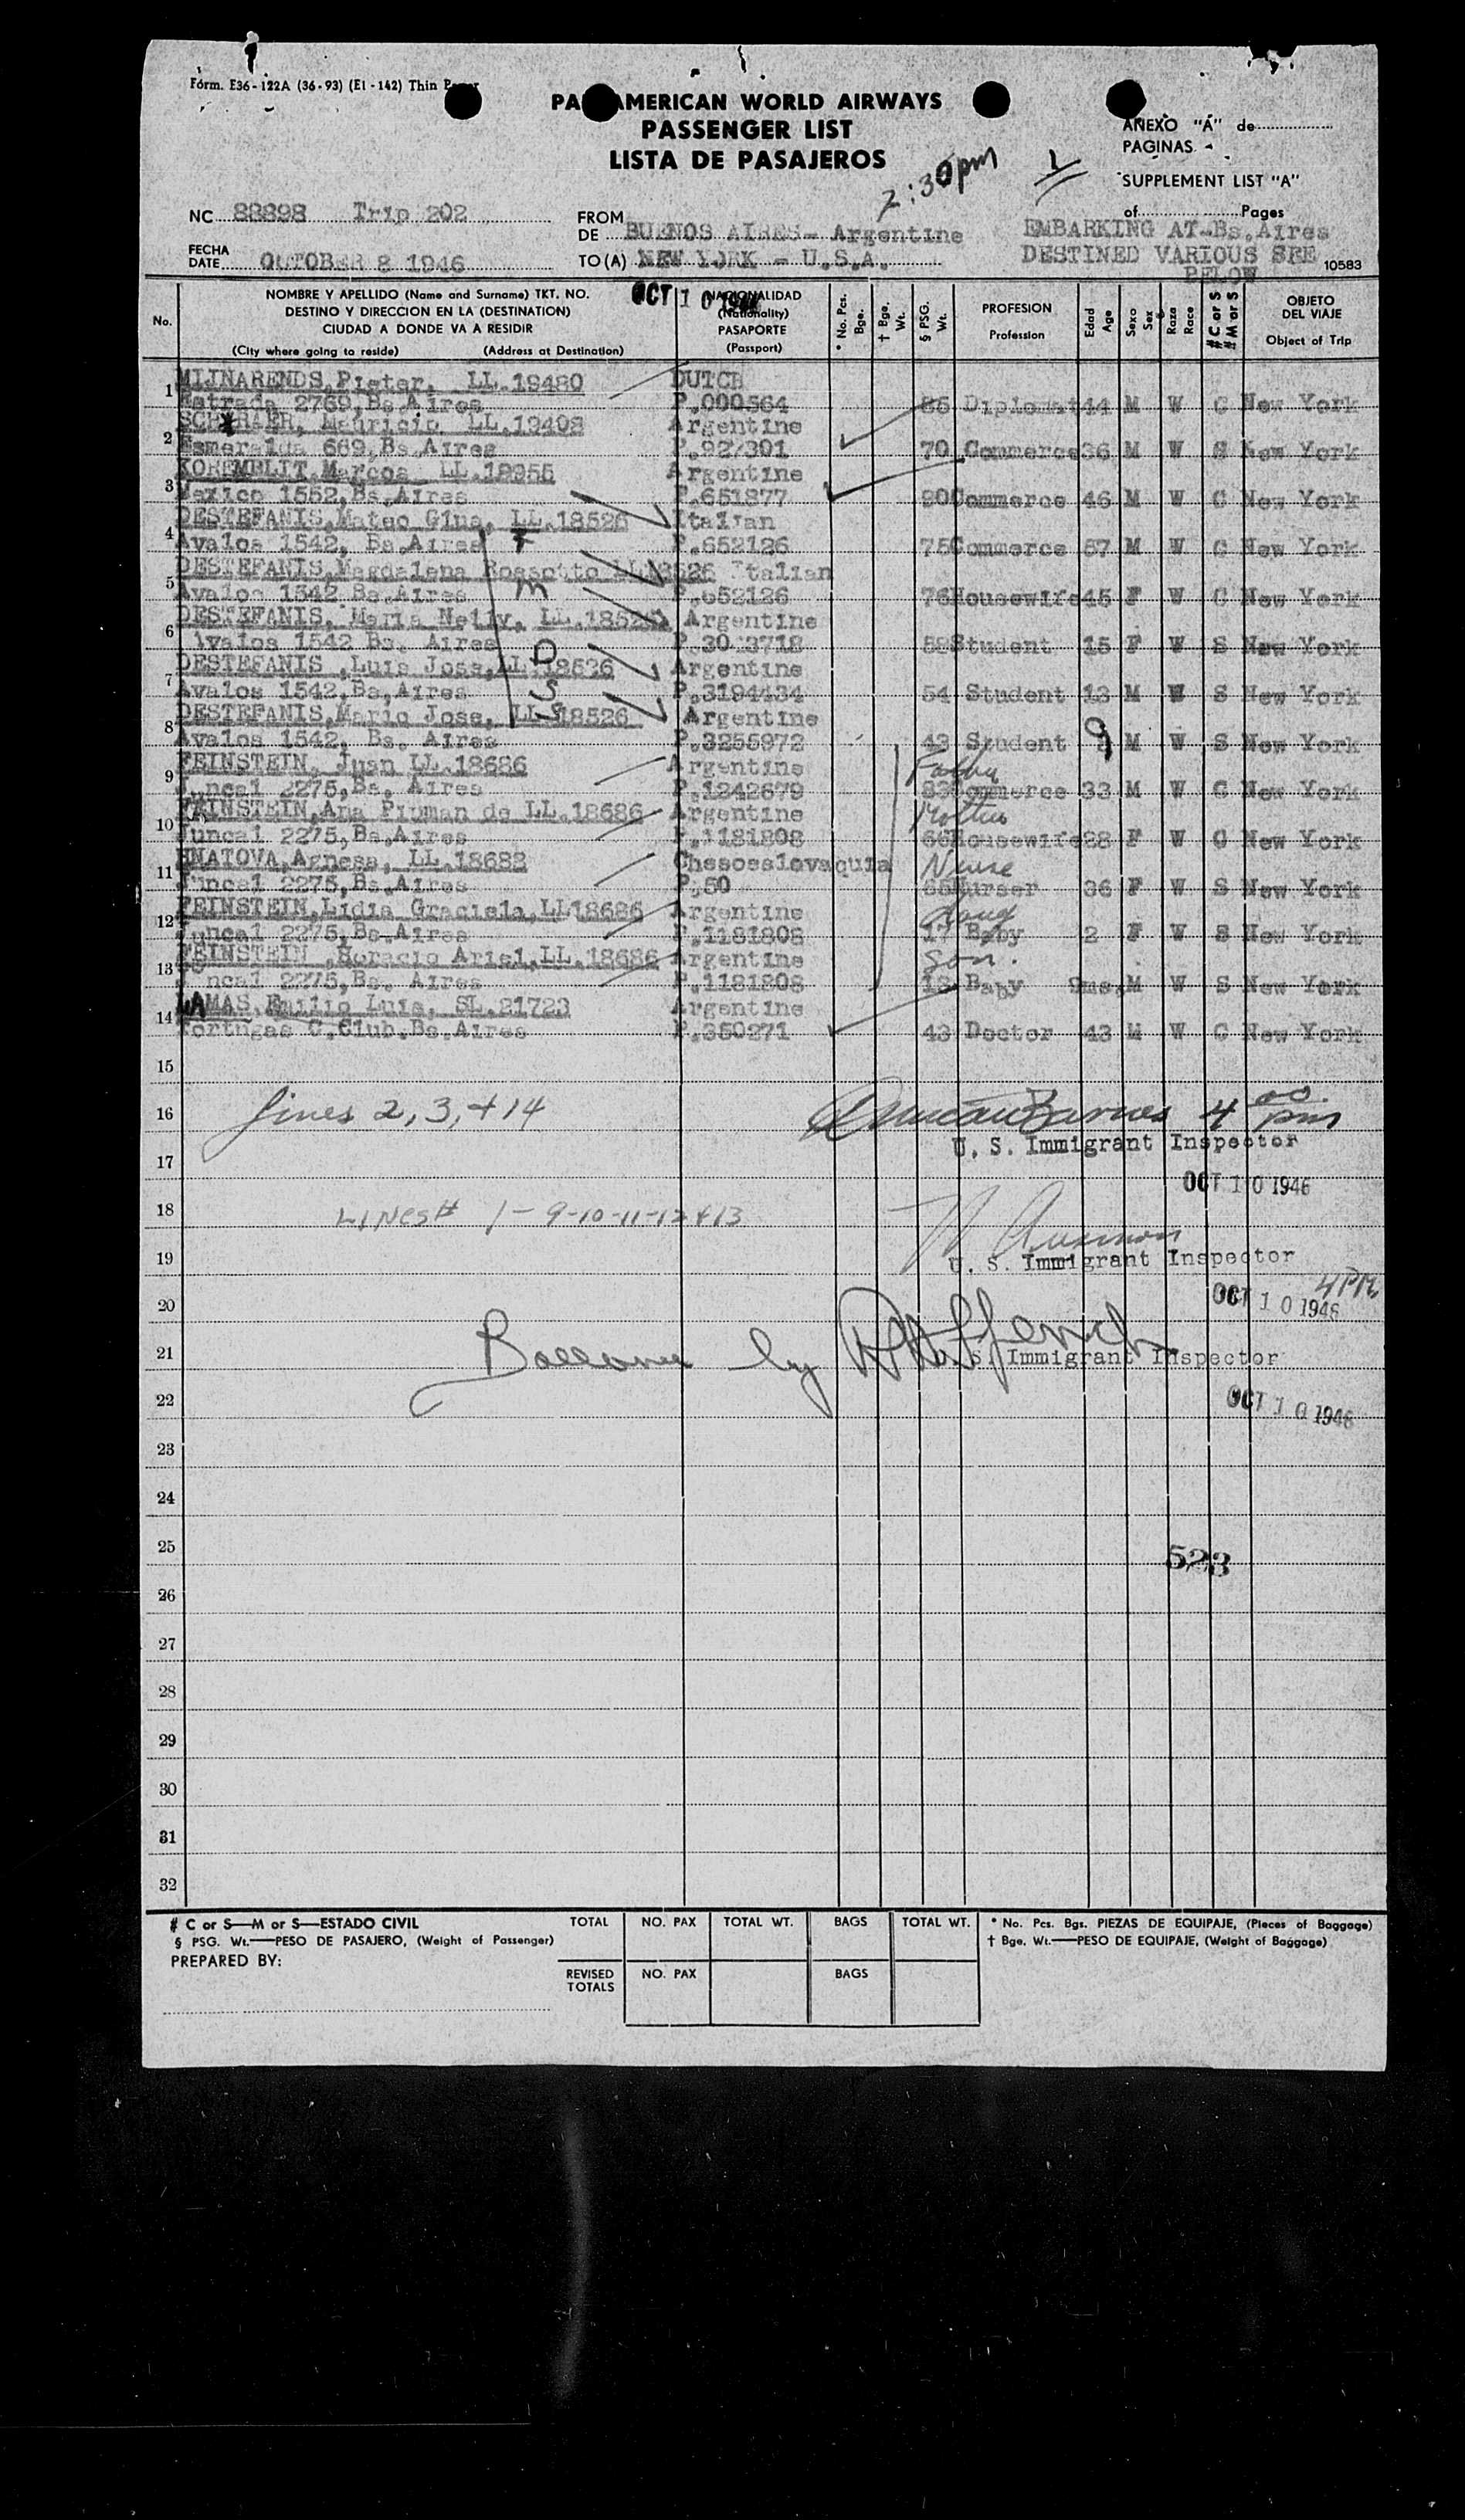 Form. E36-122A (36-93) (EI-142) Thin Paper
PAN AMERICAN WORLD AIRWAYS
PASSENGER LIST
LISTA DE PASAJEROS
ANEXO "A" de
PAGINAS
SUPPLEMENT LIST "A"
of Pages
2:30pm
1
NC 88898 Trip 202
FROM
DE BUENOS AIRES- Argentine
EMBARKING AT Bs,Aires
FECHA
DATE OCTOBER 8 1946
TO(A) NEW YORK - U.S.A.
DESTINED VARIOUS SEE
BELOW
10583
OCT 10 1946
No.
NOMBRE Y APELLIDO (Name and Surname) TKT. NO.
DESTINO Y DIRECCION EN LA (DESTINATION)
CIUDAD A DONDE VA A RESIDIR
(City where going to reside) (Address at Destination)
NACIONALIDAD
(Nationality)
PASAPORTE
(Passport)
* No. Pcs. Bge.
† Bge. Wt.
§ PSG. Wt.
PROFESION
Profession
Edad
Age
Sexo
Sex
Raza
Race
# C or S
# M or S
OBJETO
DEL VIAJE
Object of Trip
1 MIJNARENDS,Pieter, LL.19480 DUTCH
Estrada 2769,Bs.Aires P.000564 85 Diplomat 44 M W C New York
2 Mauricio LL.19408 Argentine
Esmeralda 669,Bs.Aires 70 Commerce 36 M W S New York
3 KOREMBLIT,Marcos LL. Argentine
Mexico 1552,Bs.Aires P.651877 90 Commerce 46 M W C New York
4 DESTEFANIS,Mateo Gina, LL.18526 Italian
Avalos 1542, Bs.Aires F P.652126 75 Commerce 57 M W C New York
5 DESTEFANIS,Magdalena Rossotto LL18526 Italian
Avalos 1542 Bs.Aires m P.652126 76 Housewife 45 F W C New York
6 DESTEFANIS, Maria Nelly, LL.18526 Argentine
Avalos 1542 Bs. Aires D 58 Student 15 F W S New York
7 DESTEFANIS ,Luis Jose,LL.18526 Argentine
Avalos 1542,Bs,Aires S P.3194434 54 Student 13 M W S New York
8 DESTEFANIS,Mario Jose, LL.18526 S Argentine
Avalos 1542, Bs. Aires P.3255972 43 Student 9 M W S New York
9 FEINSTEIN, Juan LL.18686 Argentine Father
Juncal 2275,Bs. Aires P.1242679 83 Commerce 33 M W C New York
10 FEINSTEIN,Ana Fixman de LL.18686 Argentine Mother
Juncal 2275,Bs.Aires P.1181808 66 Housewife 28 F W C New York
11 HNATOVA,Agness, LL.18688 Chesoeslovaquia Nurse
Juncal 2275,Bs.Aires P.50 65 Nurser 36 F W S New York
12 FEINSTEIN,Lidia Graciela,LL18686 Argentine daug
Juncal 2275,Bs.Aires P.1181808 17 Baby 2 F W S New York
13 FEINSTEIN ,Horacio Ariel,LL.18686 Argentine son.
Juncal 2275,Bs. Aires P.1181808 13 Baby 9ms. M W S New York
14 LAMAS,Emilio Luis, SL.21723 Argentine
Tortugas C.Club,Bs.Aires P.350271 43 Doctor 43 M W C New York
15
16 Lines 2, 3, + 14 Duncan Barnes 4 00 pm
U. S. Immigrant Inspector
17
OCT 10 1946
18 LINES# 1-9-10-11-12+13
19
U. S. Immigrant Inspector
4PM
20 OCT 10 1946
21 Ballance by
U. S. Immigrant Inspector
22 OCT 10 1946
23
24
25
523
26
27
28
29
30
31
32
# C or S—M or S—ESTADO CIVIL
§ PSG. Wt.—PESO DE PASAJERO, (Weight of Passenger)
PREPARED BY:
TOTAL NO. PAX TOTAL WT. BAGS TOTAL WT.
REVISED
TOTALS NO. PAX BAGS
* No. Pcs. Bgs. PIEZAS DE EQUIPAJE, (Pieces of Baggage)
† Bge. Wt.—PESO DE EQUIPAJE, (Weight of Baggage)